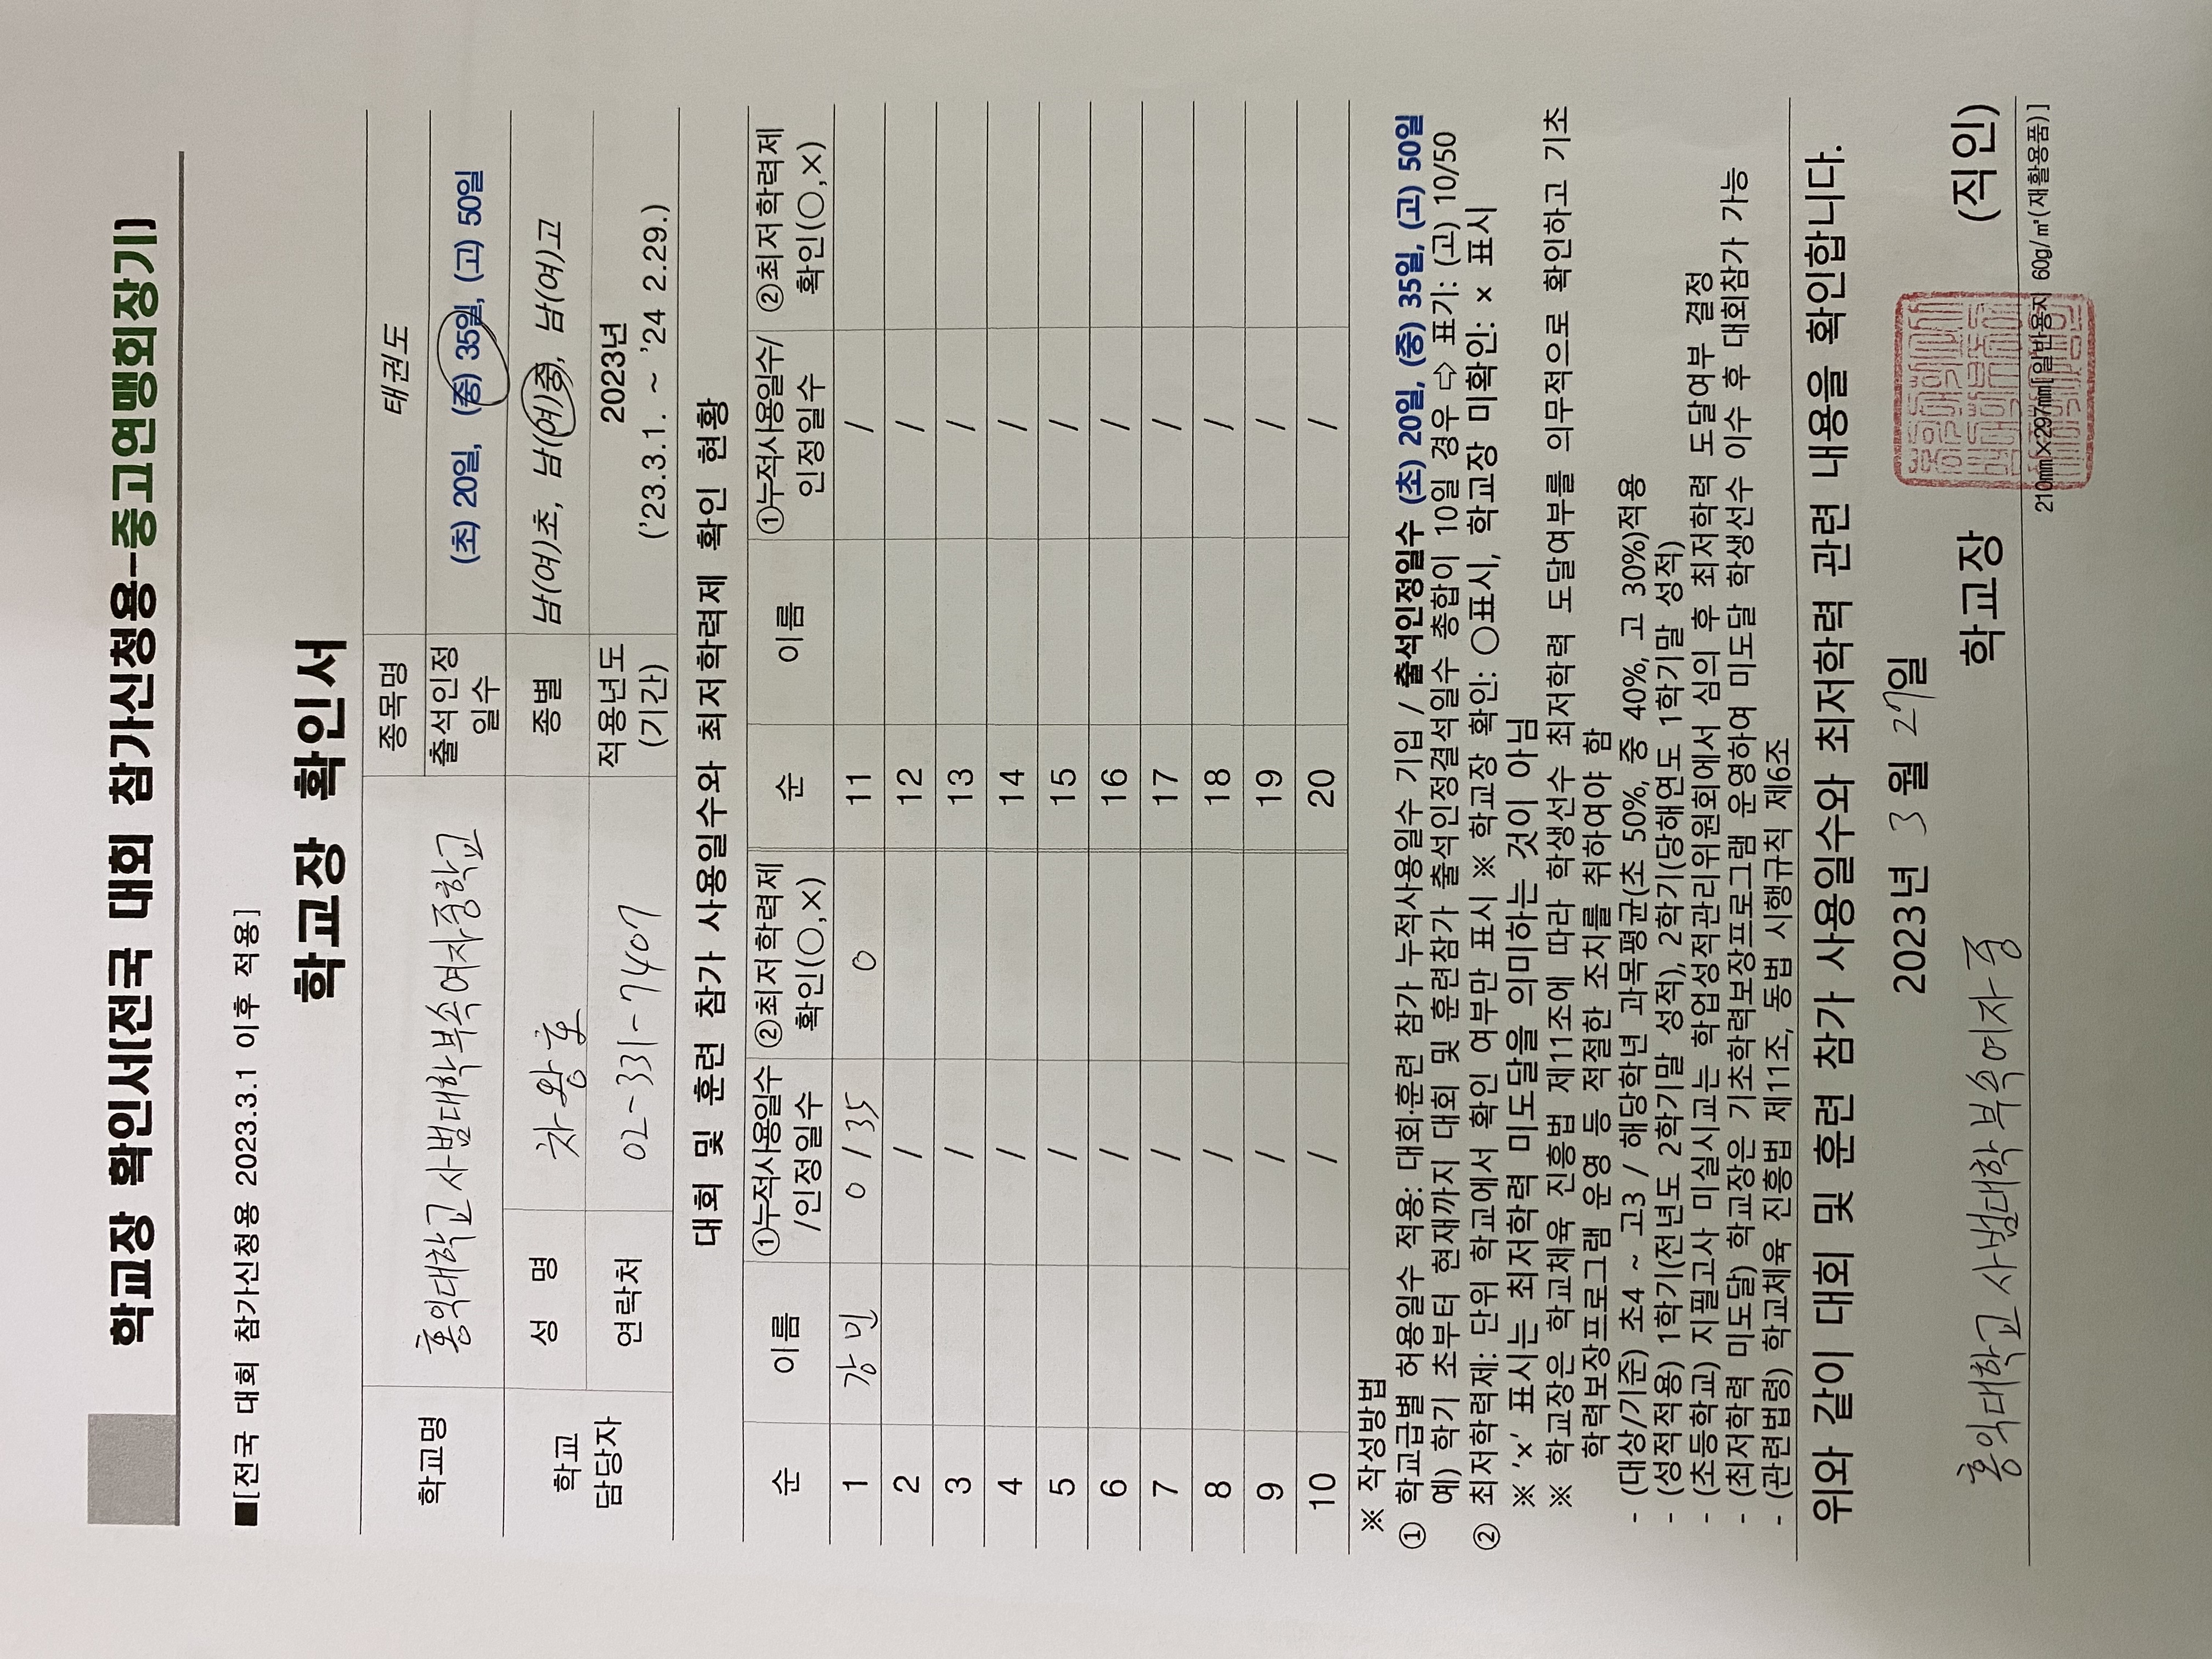 학교장 확인서[전국 대회 참가신청용-중고연맹회장기]
■[전국 대회 참가신청용 2023.3.1 이후 적용]
학교장 확인서
학교명 홍익대학교사범대학부속여자중학교 종목명 태권도
출석인정일수 (초) 20일, (중) 35일, (고) 50일
학교 담당자 성 명 차왕호 종별 남(여)초, 남(여)중, 남(여)고
연락처 02-331-7407 적용년도 (기간) 2023년 ('23.3.1. ~ '24 2.29.)
대회 및 훈련 참가 사용일수와 최저학력제 확인 현황
순 이름 ①누적사용일수/인정일수 ②최저학력제 확인(○,×) 순 이름 ①누적사용일수/인정일수 ②최저학력제 확인(○,×)
1 강민 0 / 35 0 11 /
2 / 12 /
3 / 13 /
4 / 14 /
5 / 15 /
6 / 16 /
7 / 17 /
8 / 18 /
9 / 19 /
10 / 20 /
※ 작성방법
① 학교급별 허용일수 적용: 대회·훈련 참가 누적사용일수 기입 / 출석인정일수 (초) 20일, (중) 35일, (고) 50일
예) 학기 초부터 현재까지 대회 및 훈련참가 출석인정결석일수 총합이 10일 경우 ⇨ 표기: (고) 10/50
② 최저학력제: 단위 학교에서 확인 여부만 표시 ※ 학교장 확인: ○표시, 학교장 미확인: × 표시
※ '×' 표시는 최저학력 미도달을 의미하는 것이 아님
※ 학교장은 학교체육 진흥법 제11조에 따라 학생선수 최저학력 도달여부를 의무적으로 확인하고 기초
학력보장프로그램 운영 등 적절한 조치를 취하여야 함
- (대상/기준) 초4 ~ 고3 / 해당학년 과목평균(초 50%, 중 40%, 고 30%)적용
- (성적적용) 1학기(전년도 2학기말 성적), 2학기(당해연도 1학기말 성적)
- (초등학교) 지필고사 미실시교는 학업성적관리위원회에서 심의 후 최저학력 도달여부 결정
- (최저학력 미도달) 학교장은 기초학력보장프로그램 운영하여 미도달 학생선수 이수 후 대회참가 가능
- (관련법령) 학교체육 진흥법 제11조, 동법 시행규칙 제6조
위와 같이 대회 및 훈련 참가 사용일수와 최저학력 관련 내용을 확인합니다.
2023년 3 월 27일
홍익대학교 사범대학 부속여자중 학교장 (직인)
210㎜×297㎜[일반용지 60g/㎡(재활용품)]